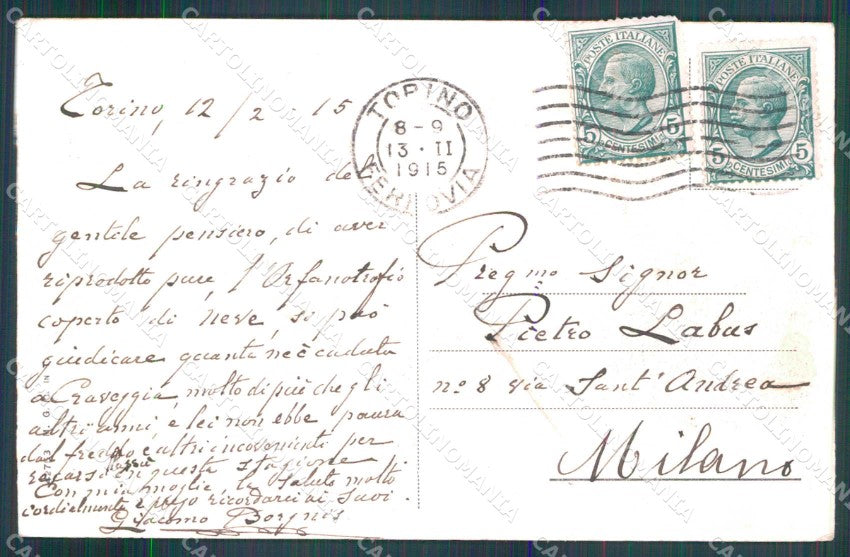 Torino, 12/2-15
La ringrazio del
gentile pensiero, di aver
riprodotto pure, l'Orfanotrofio
coperto di neve, si può
giudicare quanta ne è caduta
a Craveggia, molto di più che gli
altri anni, e lei non ebbe paura
del freddo, e altri inconvenienti per
recarsi lassù in questa stagione
Con mia moglie, la saluto molto
cordialmente, e prego ricordarci ai suoi.
Giacomo Borgnis
TORINO
8-9
13·II
1915
FERROVIA
POSTE ITALIANE
5 CENTESIMI 5
POSTE ITALIANE
5 CENTESIMI 5
Pregmo Signor
Pietro Labus
no 8 via Sant'Andrea
Milano
CARTOLINOMANIA